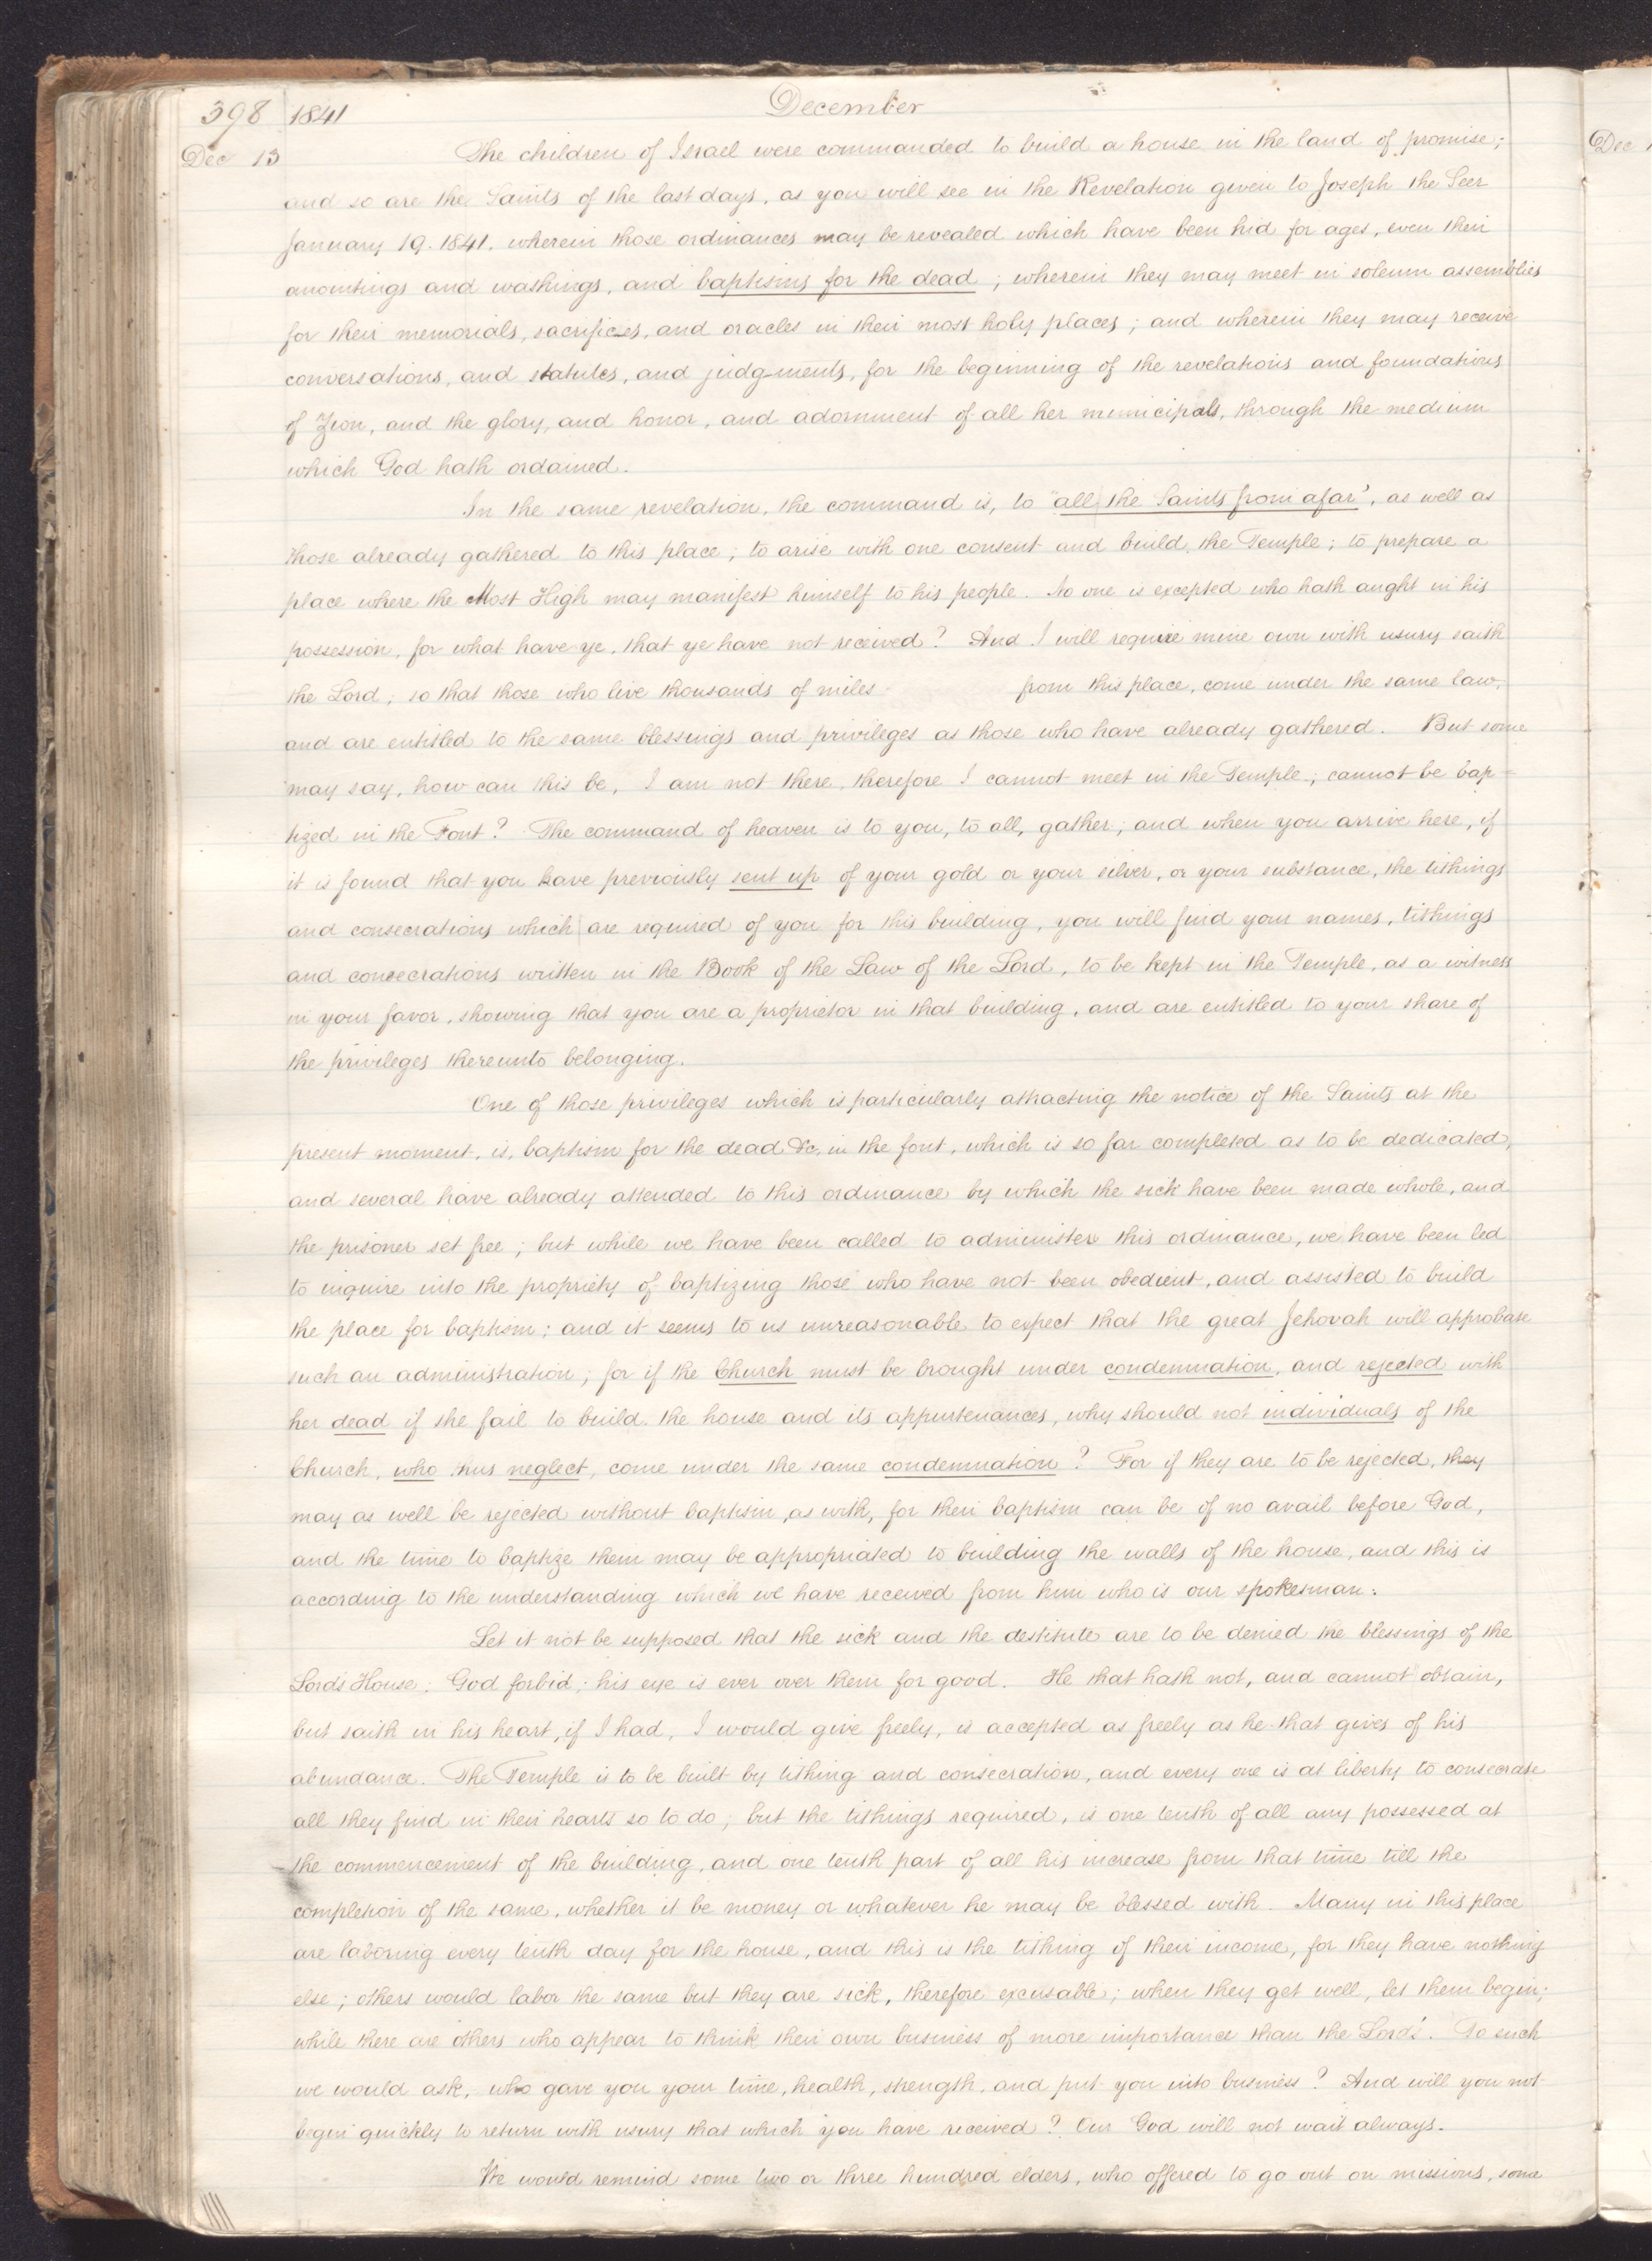 398 1841 December
Dec 13 The children of Israel were commanded to build a house in the land of promise;
and so are the Saints of the last days, as you will see in the Revelation given to Joseph the Seer
January 19. 1841. wherein those ordinances may be revealed which have been hid for ages, even their
anointings and washings, and baptisms for the dead; wherein they may meet in solemn assemblies
for their memorials, sacrifices, and oracles in their most holy places; and wherein they may receive
conversations, and statutes, and judgments, for the beginning of the revelations and foundations
of Zion, and the glory, and honor, and adornment of all her municipals, through the medium
which God hath ordained.
In the same revelation, the command is, to "all the Saints from afar", as well as
those already gathered to this place; to arise with one consent and build the Temple; to prepare a
place where the Most High may manifest himself to his people. No one is excepted who hath aught in his
possession, for what have ye, that ye have not received? And I will require mine own with usury saith
the Lord; so that those who live thousands of miles from this place, come under the same law,
and are entitled to the same blessings and privileges as those who have already gathered. But some
may say, how can this be, I am not there, therefore I cannot meet in the Temple; cannot be bap=
tized in the Font? The command of heaven is to you, to all, gather; and when you arrive here, if
it is found that you have previously sent up of your gold or your silver, or your substance, the tithings
and consecrations which are required of you for this building, you will find your names, tithings
and consecrations written in the Book of the Law of the Lord, to be kept in the Temple, as a witness
in your favor, showing that you are a proprietor in that building, and are entitled to your share of
the privileges thereunto belonging.
One of those privileges which is particularly attracting the notice of the Saints at the
present moment, is, baptism for the dead &c. in the font, which is so far completed as to be dedicated,
and several have already attended to this ordinance by which the sick have been made whole, and
the prisoner set free; but while we have been called to administer this ordinance, we have been led
to inquire into the propriety of baptizing those who have not been obedient, and assisted to build
the place for baptism; and it seems to us unreasonable to expect that the great Jehovah will approbate
such an administration; for if the Church must be brought under condemnation, and rejected with
her dead if she fail to build the house and its appurtenances, why should not individuals of the
Church, who thus neglect, come under the same condemnation? For if they are to be rejected, they
may as well be rejected without baptism, as with, for their baptism can be of no avail before God,
and the time to baptize them may be appropriated to building the walls of the house, and this is
according to the understanding which we have received from him who is our spokesman.
Let it not be supposed that the sick and the destitute are to be denied the blessings of the
Lord's House; God forbid; his eye is ever over them for good. He that hath not, and cannot obtain,
but saith in his heart, if I had, I would give freely, is accepted as freely as he that gives of his
abundance. The Temple is to be built by tithing and consecration, and every one is at liberty to consecrate
all they find in their hearts so to do; but the tithings required, is one tenth of all any possessed at
the commencement of the building, and one tenth part of all his increase from that time till the
completion of the same, whether it be money or whatever he may be blessed with. Many in this place
are laboring every tenth day for the house, and this is the tithing of their income, for they have nothing
else; others would labor the same but they are sick, therefore excusable; when they get well, let them begin;
while there are others who appear to think their own business of more importance than the Lord's. To such
we would ask, who gave you your time, health, strength, and put you into business? And will you not
begin quickly to return with usury that which you have received? Our God will not wait always.
We would remind some two or three hundred elders, who offered to go out on missions, some
Dec